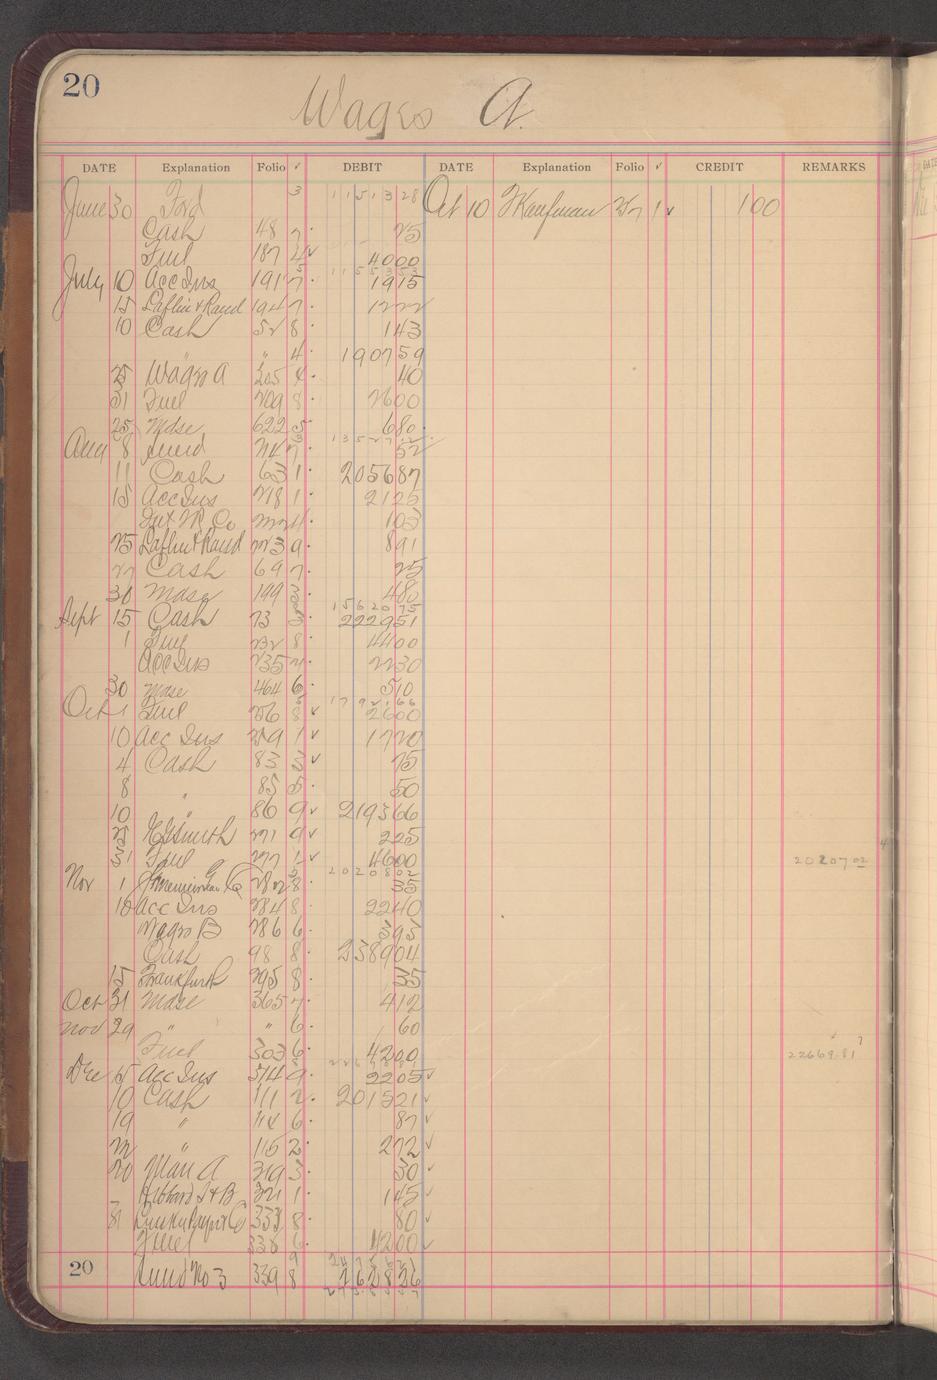 20
Wages A.
DATE Explanation Folio ✓ DEBIT DATE Explanation Folio ✓ CREDIT REMARKS
June 30 Ford 3 11513 28 Oct 10 Kaufman 1 ✓ 1 00
Cash 48 7 25
Fuel 187 4 ✓ 40 00
July 10 Acc Ins 191 7 19 15
15 Laflin & Rand 194 7 12 22
10 Cash 52 8 1 43
" " 4 1907 59
25 Wages A 205 4 40
31 Fuel 209 8 26 00
25 Mdse 622 5 6 80
Aug 8 7 52
11 Cash 63 1 2056 87
15 Acc Ins 218 1 21 25
Co 1 03
25 Laflin & Rand 223 9 8 91
27 Cash 69 7 25
30 Mdse 199 4 80
15620 75
Sept 15 Cash 73 3 2229 51
1 Fuel 232 8 44 00
Acc Ins 235 22 30
30 Mdse 464 6 5 10
Oct 1 Fuel 256 8 ✓ 26 00
10 Acc Ins 259 1 ✓ 17 20
4 Cash 83 3 ✓ 75
8 " 85 5 50
10 " 86 9 ✓ 2193 66
25 271 9 ✓ 2 25
31 Fuel 277 1 ✓ 46 00 20207 02
20208 02
Nov 1 282 8 35
10 Acc Ins 284 8 22 40
Wages B 286 6 3 95
Cash 98 8 2389 04
15 Frankfurth 295 8 35
Oct 31 Mdse 365 7 4 12
Nov 29 " " 6 60
Fuel 303 6 42 00 22669.81 ?
Dec 15 Acc Ins 314 9 22 05 ✓
10 Cash 111 2 2015 21 ✓
19 " 114 6 87 ✓
22 " 115 2 2 72 ✓
20 Main A 319 3 30 ✓
Hibbard S & B 321 1 1 45 ✓
31 333 8 80 ✓
Fuel 338 6 42 00 ✓
20 No 3 339 8 2628 26